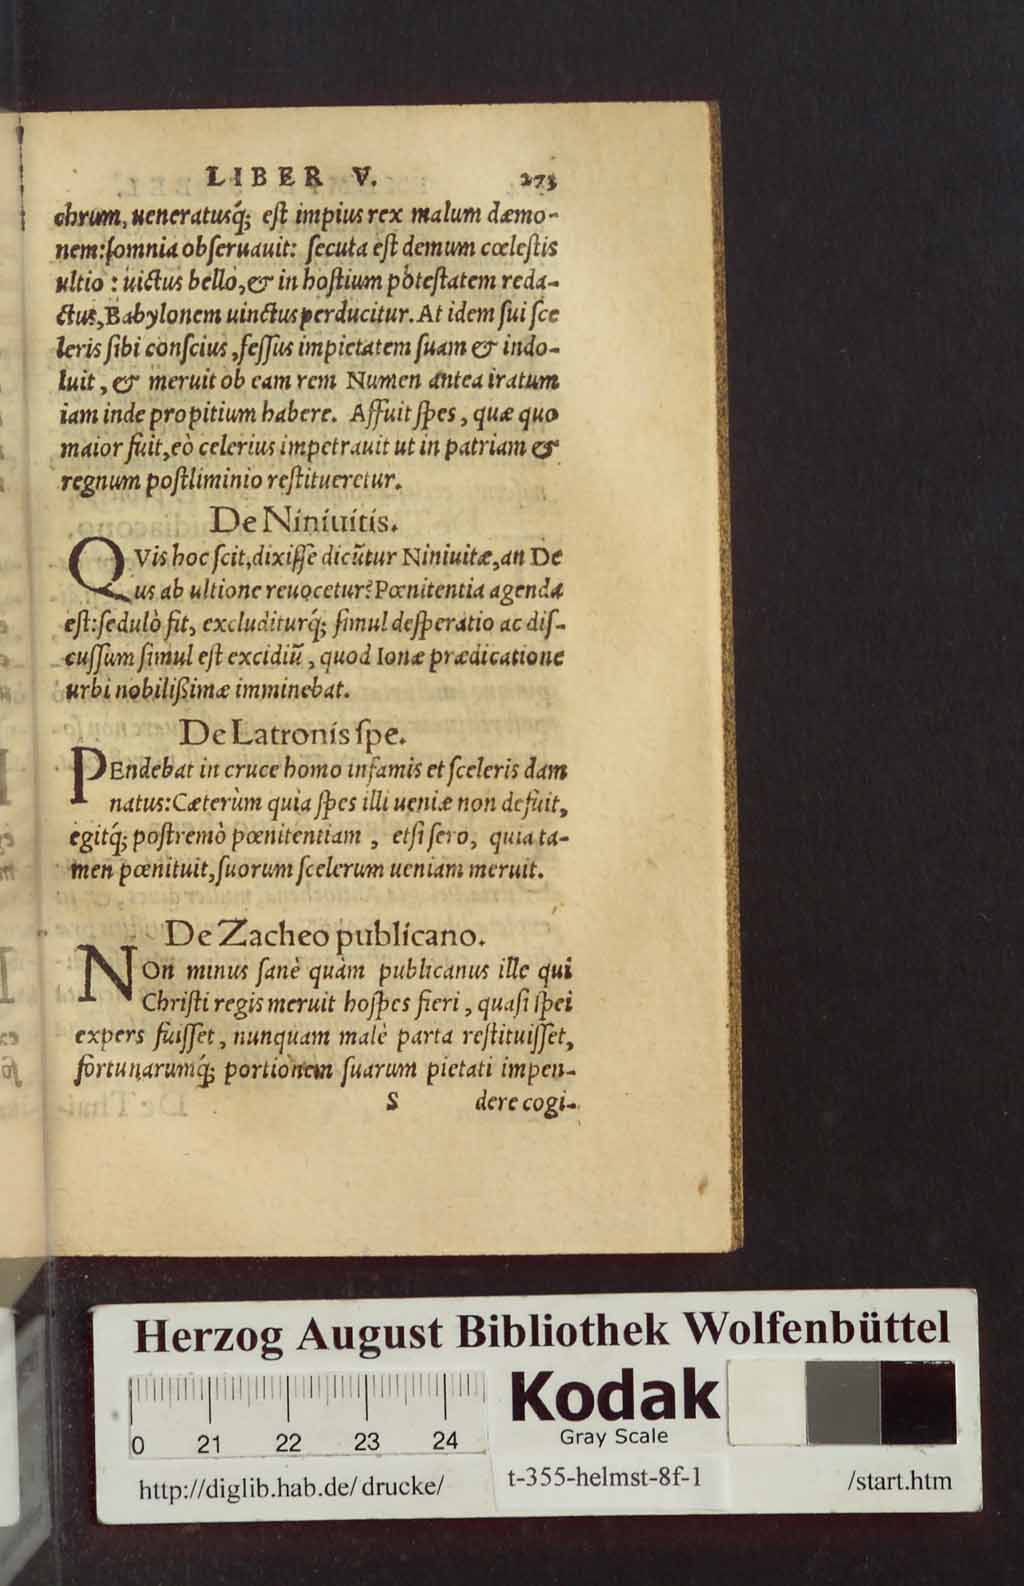 LIBER V. 273
chrum, ueneratusq́; eſt impius rex malum dæmo-
nem:ſomnia obſeruauit: ſecuta eſt demum cœleſtis
ultio : uictus bello, & in hoſtium poteſtatem reda-
ctus, Babylonem uinctus perducitur. At idem ſui ſce
leris ſibi conſcius, feſſus impietatem ſuam & indo-
luit, & meruit ob eam rem Numen antea iratum
iam inde propitium habere. Affuit ſpes, quæ quo
maior fuit, eò celerius impetrauit ut in patriam &
regnum poſtliminio reſtitueretur.
De Niniuitis.
QVis hoc ſcit, dixiſſe dicũtur Niniuitæ, an De
us ab ultione reuocetur? Pœnitentia agenda
eſt: ſedulò fit, excluditurq́; ſimul deſperatio ac diſ-
cuſſum ſimul eſt excidiũ, quod Ionæ prædicatione
urbi nobilißimæ imminebat.
De Latronis ſpe.
PEndebat in cruce homo infamis et ſceleris dam
natus: Cæterùm quia ſpes illi ueniæ non defuit,
egitq́; poſtremò pœnitentiam , etſi ſero, quia ta-
men pœnituit, ſuorum ſcelerum ueniam meruit.
De Zacheo publicano.
NOn minus ſanè quàm publicanus ille qui
Chriſti regis meruit hoſpes fieri, quaſi ſpei
expers fuiſſet, nunquam malè parta reſtituiſſet,
fortunarumq́; portionem ſuarum pietati impen-
S dere cogi-
Herzog August Bibliothek Wolfenbüttel
Kodak
Gray Scale
0 21 22 23 24
http://diglib.hab.de/drucke/ t-355-helmst-8f-1 /start.htm